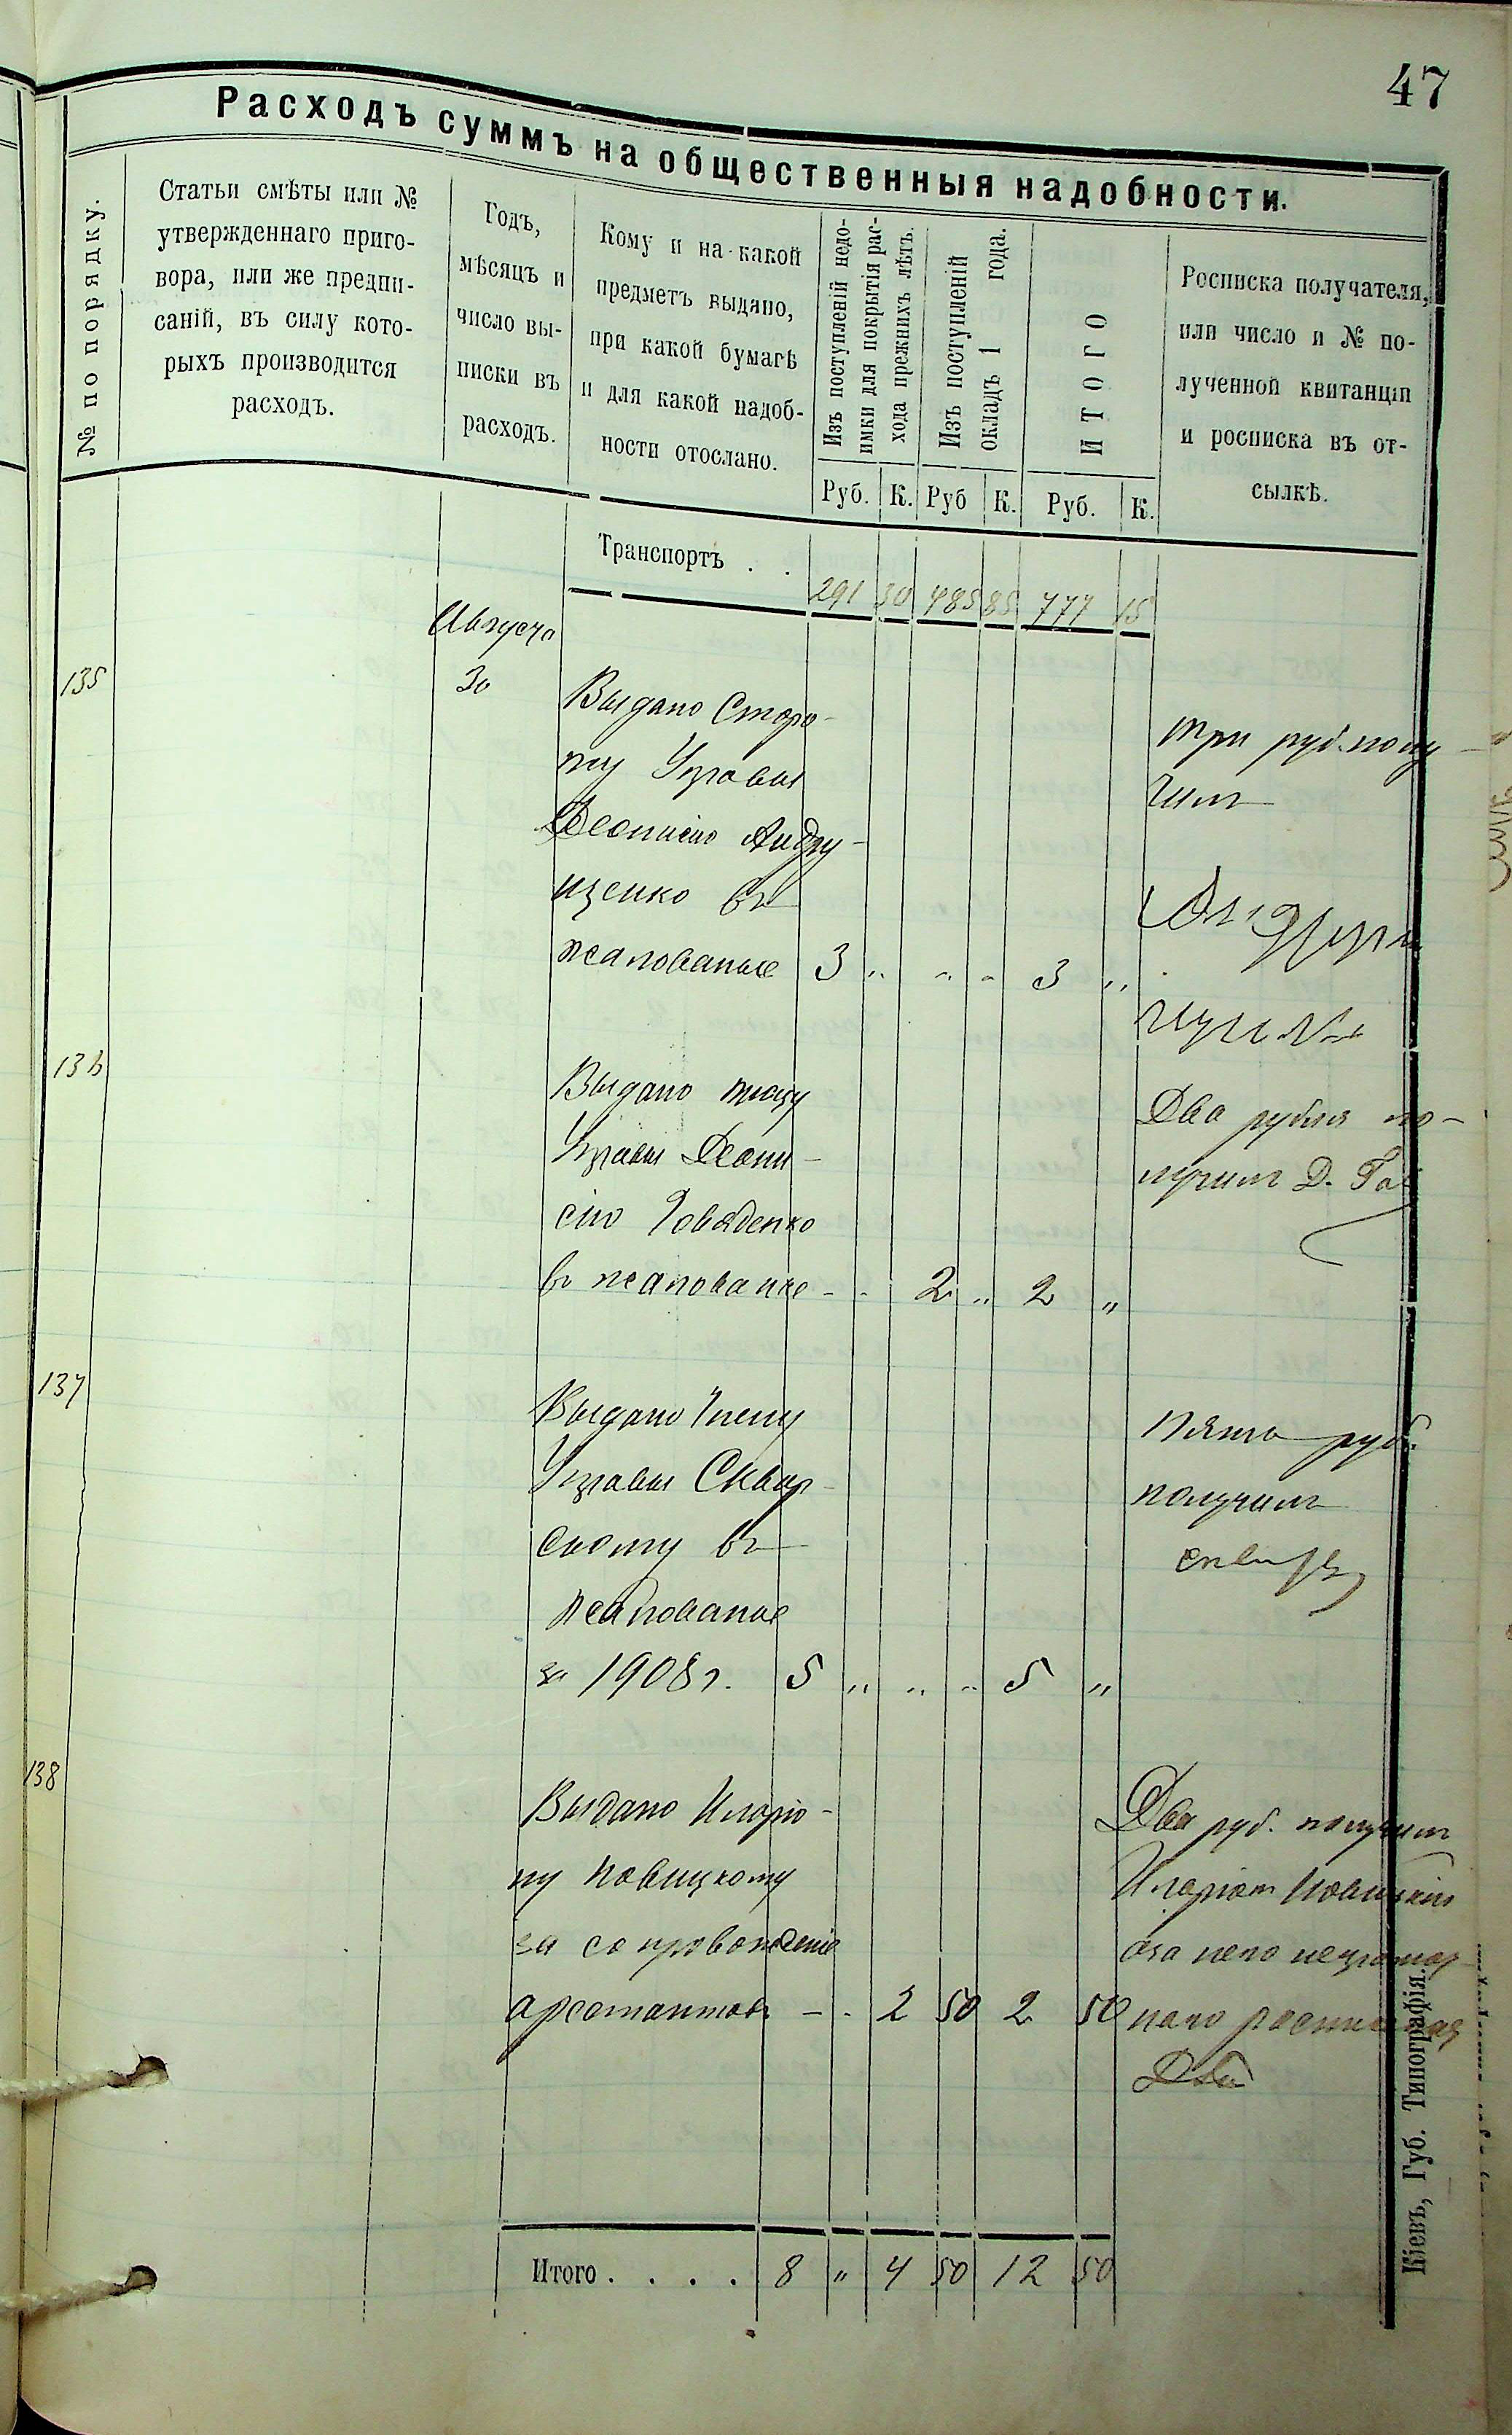 47
Расходъ суммъ на общественныя надобности.
№ по порядку.
Статьи смѣты или №
утвержденнаго приго-
вора, или же предпи-
саній, въ силу кото-
рыхъ производится
расходъ.
Годъ,
мѣсяцъ и
число вы-
писки въ
расходъ.
Кому и на какой
предметъ выдано,
при какой бумагѣ
и для какой надоб-
ности отослано.
Изъ поступленій недо-
имки для покрытія рас-
хода прежнихъ лѣтъ.
Изъ поступленій
окладъ 1 года.
ИТОГО
Росписка получателя,
или число и № по-
лученной квитанціи
и росписка въ от-
сылкѣ.
Руб. К. Руб К. Руб. К.
Транспортъ . . 291 30 485 85 777 15
Августа
135 30 Выдано Сторо-
жу Управы
Деонисію Андру-
щенко въ
жалованье 3 „ „ „ 3 „
три руб. полу-
чилъ
Андру
щенко
136 Выдано
Управы Деони-
сію
въ жалованье - - 2 „ 2 „
Два рубля по-
лучилъ Д. Гай
137 Выдано Члену
Управы Сквар-
скому въ
жалованье
за 1908 г. 5 „ „ „ 5 „
Пять руб.
получилъ
138 Выдано Иларіо-
ну Новицкому
за сопровожденіе
арестантовъ - - 2 50 2 50
Два руб. получилъ
Иларіон Новицкій
а за него неграмот-
наго росписался
Итого . . . . 8 „ 4 50 12 50
Кіевъ, Губ. Типографія.